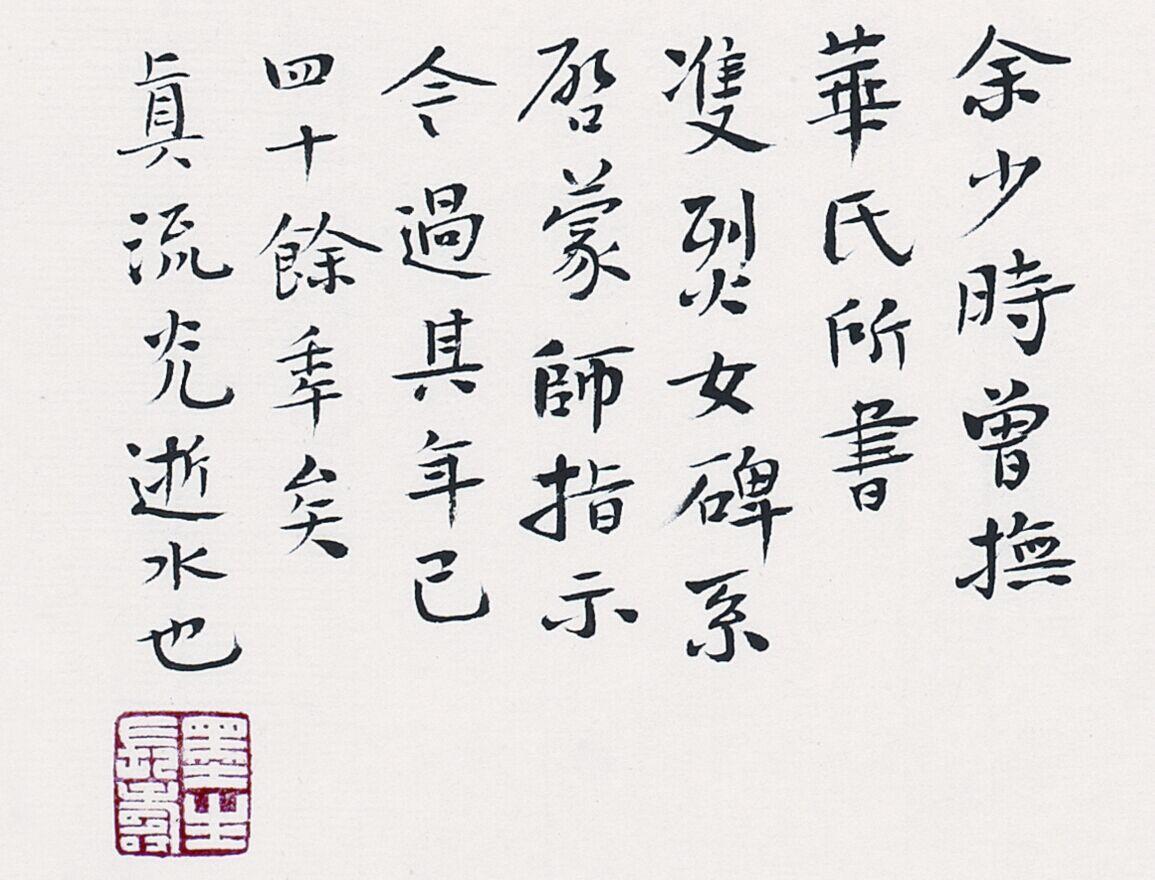 余少時曾撫
華氏所書
雙烈女碑系
啓蒙師指示
今過其年已
四十餘秊矣
眞流光逝水也
墨生長壽